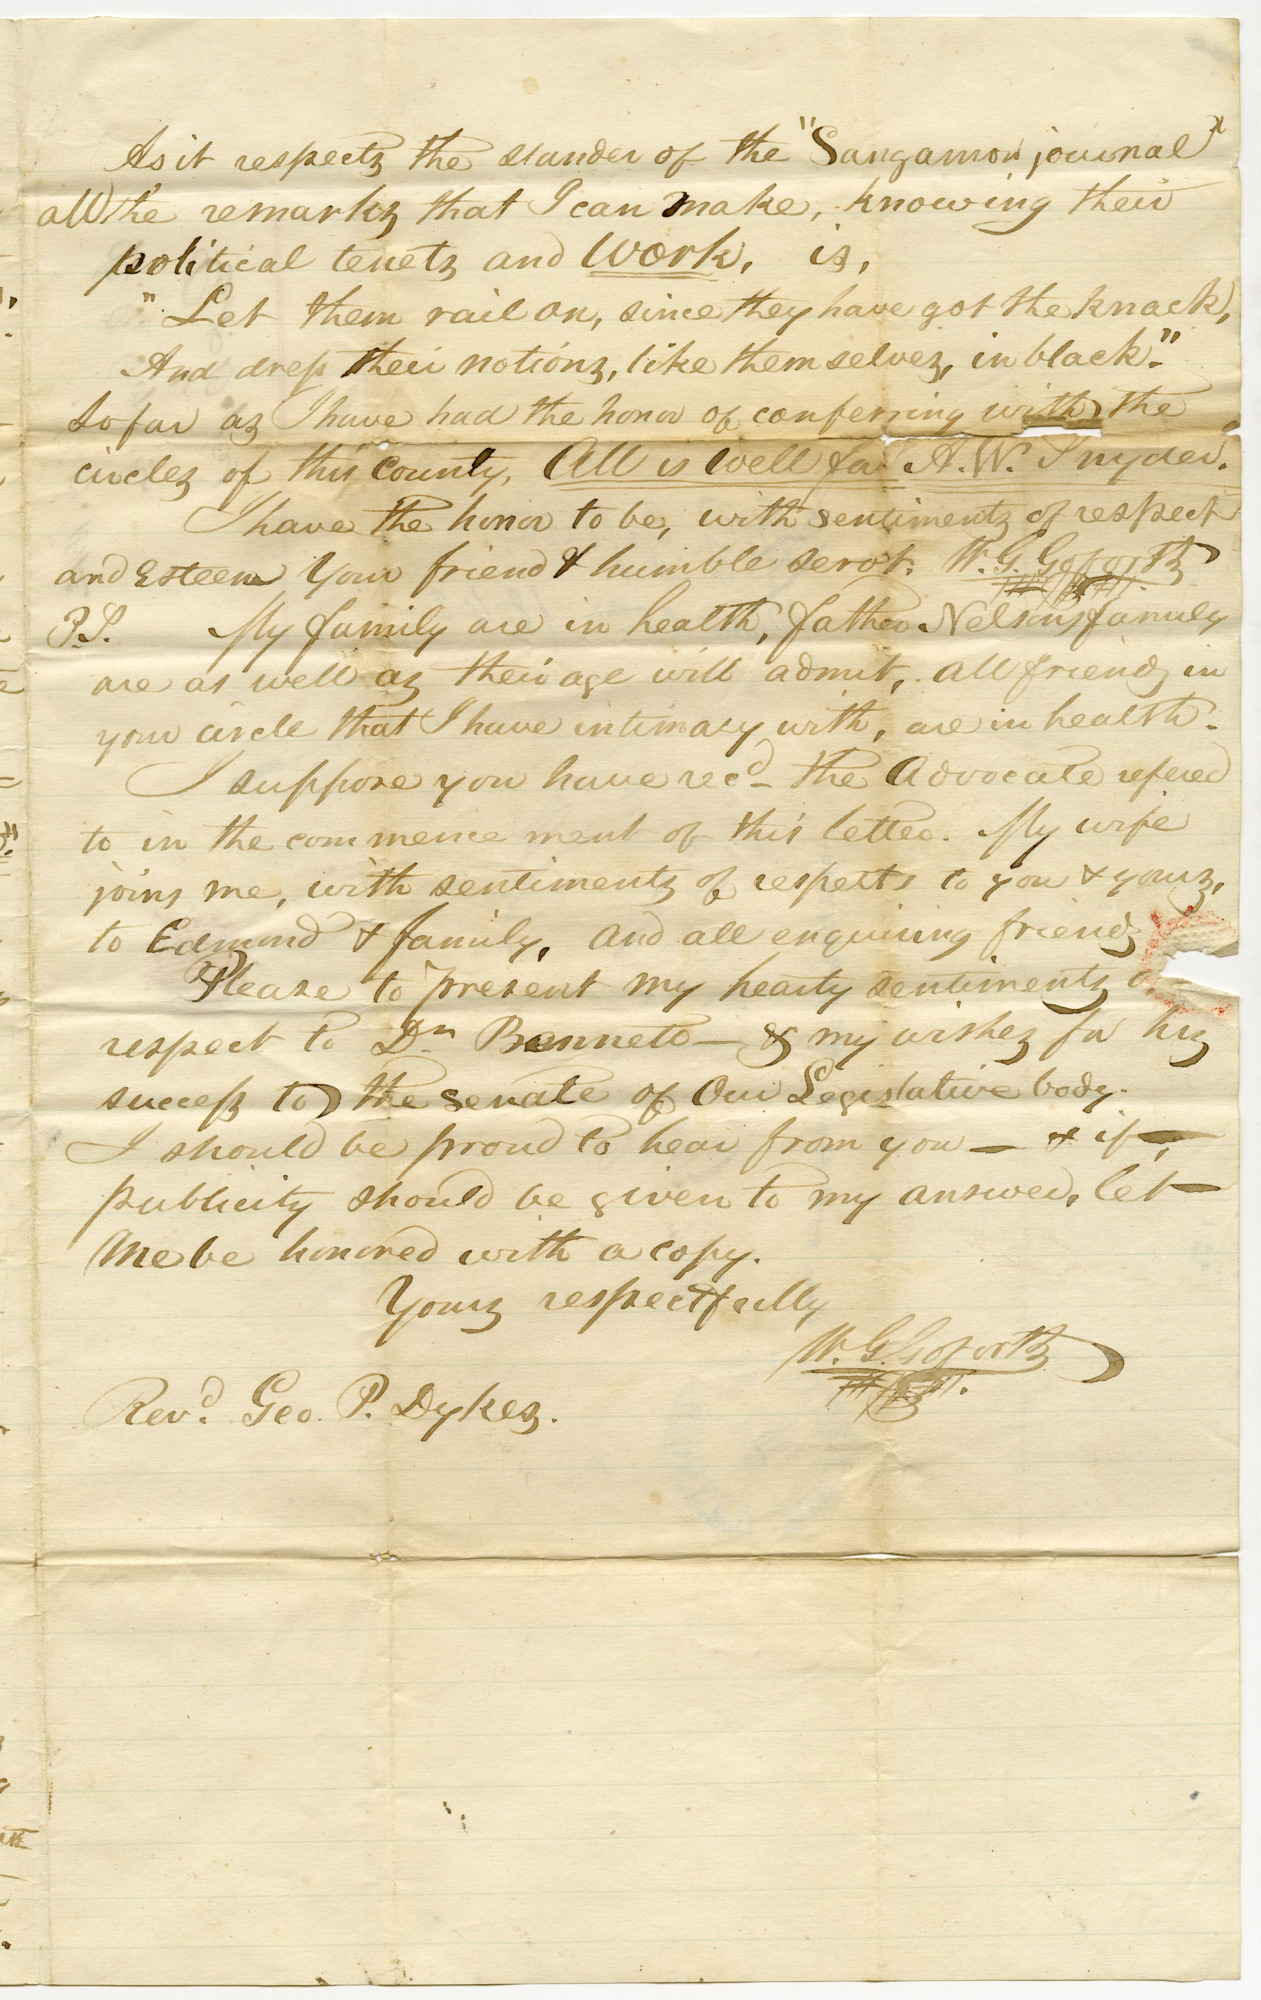 As it respects the slander of the "Sangamon journal"
all the remarks that I can make, knowing their
political tenets and Work, is,
"Let them rail on, since they have got the knack,
And dress their notions, like themselves, in black."
So far as I have had the honor of conferring with the
circles of this County, All is well for A. W. Snyder.
I have the honor to be, with sentiments of respect
and Esteem Your friend & humble servt. W. G. Goforth
P.S. My family are in health, father Nelsons family
are as well as their age will admit, all friends in
your circle that I have intimacy with, are in health.
I suppose you have recd- the Advocate refered
to in the commencement of this letter. My wife
joins me, with sentiments of respects to you & yours,
to Edmond & family, and all enquiring friends
Please to present my hearty sentiments
respect to Dr. Bennett — & my wishes for his
success to the senate of Our Legislative body.
I should be proud to hear from you — & if —
publicity should be given to my answer, let —
me be honored with a copy.
Yours respectfully
W. G. Goforth
Revd. Geo. P. Dykes.